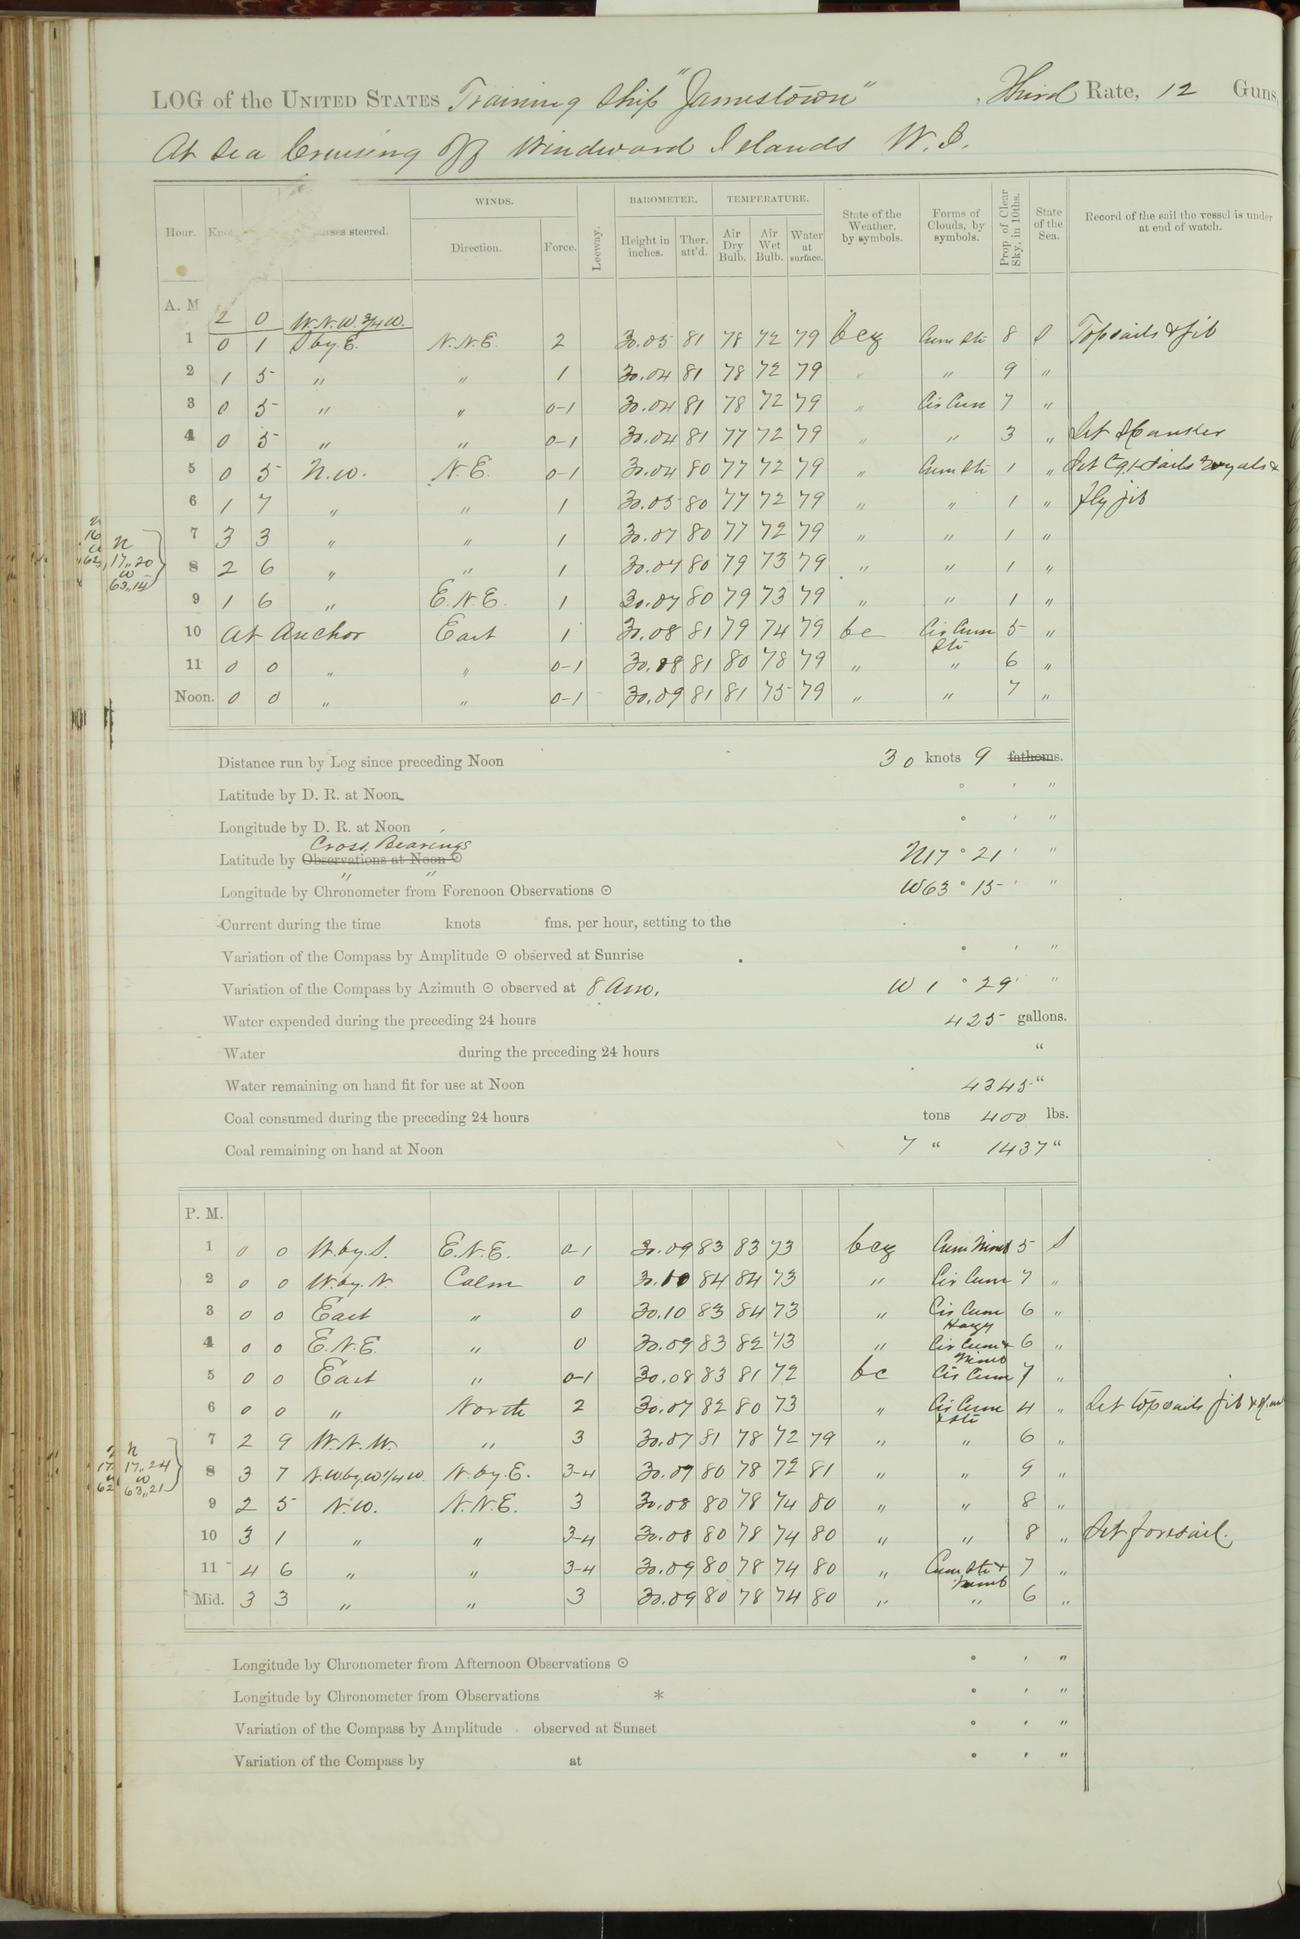 LOG of the UNITED STATES Training Ship "Jamestown", Third Rate, 12 Guns,
At Sea Cruising off Windward Islands W.I.
WINDS. BAROMETER. TEMPERATURE.
Hour. Courses steered. Direction. Force. Leeway. Height in inches. Ther. att'd. Air Dry Bulb. Air Wet Bulb. Water at surface. State of the Weather, by symbols. Forms of Clouds, by symbols. Prop. of Clear Sky, in 10ths. State of the Sea. Record of the sail the vessel is under at end of watch.
A. M
2 0 W.N.W. 3/4 W.
1 0 1 S by E. N.N.E. 2 30.05 81 78 72 79 bcq Cum Sti 8 S Topsails & jib
2 1 5 " " 1 30.04 81 78 72 79 " " 9 "
3 0 5 " " 0-1 30.04 81 78 72 79 " Cir Cum 7 "
4 0 5 " " 0-1 30.04 81 77 72 79 " " 3 " Set Spanker
5 0 5 N.W. N.E. 0-1 30.04 80 77 72 79 " Cum Sti 1 " Set Tg. Sails royals &
6 1 7 " " 1 30.05 80 77 72 79 " " 1 " fly jib
7 3 3 " " 1 30.07 80 77 72 79 " " 1 "
N
17,,20
W
63,,14
8 2 6 " " 1 30.07 80 79 73 79 " " 1 "
9 1 6 " E.N.E. 1 30.07 80 79 73 79 " " 1 "
10 At Anchor East 1 30.08 81 79 74 79 bc Cir Cum Sti 5 "
11 0 0 " " 0-1 30.08 81 80 78 79 " " 6 "
Noon. 0 0 " " 0-1 30.09 81 81 75 79 " " 7 "
Distance run by Log since preceding Noon 30 knots 9 fathoms.
Latitude by D. R. at Noon ° ' "
Longitude by D. R. at Noon ° ' "
Cross Bearings
Latitude by Observations at Noon ⊙ N 17 ° 21 ' "
" "
Longitude by Chronometer from Forenoon Observations ⊙ W 63 ° 15 ' "
Current during the time knots fms. per hour, setting to the
Variation of the Compass by Amplitude ⊙ observed at Sunrise ° ' "
Variation of the Compass by Azimuth ⊙ observed at 8 Am. W 1 ° 29 ' "
Water expended during the preceding 24 hours 425 gallons.
Water during the preceding 24 hours "
Water remaining on hand fit for use at Noon 4345 "
Coal consumed during the preceding 24 hours tons 400 lbs.
Coal remaining on hand at Noon 7 " 1437 "
P. M.
1 0 0 W. by. S. E.N.E. 0-1 30.09 83 83 73 bcq Cum Nimb 5 S
2 0 0 W. by. N. Calm 0 30.10 84 84 73 " Cir Cum 7 "
3 0 0 East " 0 30.10 83 84 73 " Cir Cum Hazy 6 "
4 0 0 E.N.E. " 0 30.09 83 82 73 " Cir Cum & Nimb 6 "
5 0 0 East " 0-1 30.08 83 81 72 bc Cir Cum 7 "
6 0 0 " North 2 30.07 82 80 73 " Cir Cum & Sti 4 " Set topsails jib &
7 2 9 W.N.W. " 3 30.07 81 78 72 79 " " 6 "
N
17,,24
W
63,,21
8 3 7 N.W. by W 1/4 W. N. by. E. 3-4 30.09 80 78 72 81 " " 9 "
9 2 5 N.W. N.N.E. 3 30.08 80 78 74 80 " " 8 "
10 3 1 " " 3-4 30.08 80 78 74 80 " " 8 " Set foresail.
11 4 6 " " 3-4 30.09 80 78 74 80 " Cum Sti & Nimb 7 "
Mid. 3 3 " " 3 30.09 80 78 74 80 " " 6 "
Longitude by Chronometer from Afternoon Observations ⊙ ° ' "
Longitude by Chronometer from Observations * ° ' "
Variation of the Compass by Amplitude observed at Sunset ° ' "
Variation of the Compass by at ° ' "